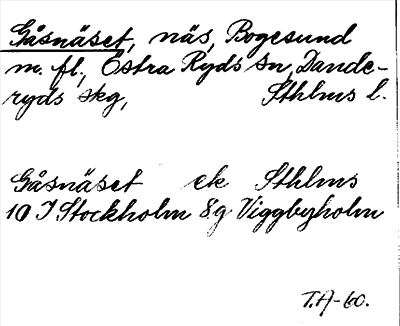 Gåsnäset, näs, Bogesund
m. fl., Östra Ryds sn, Dande-
ryds skg, Sthlms l.
Gåsnäset ek Sthlms
10 I Stockholm 8g Viggbyholm
T.A-60.